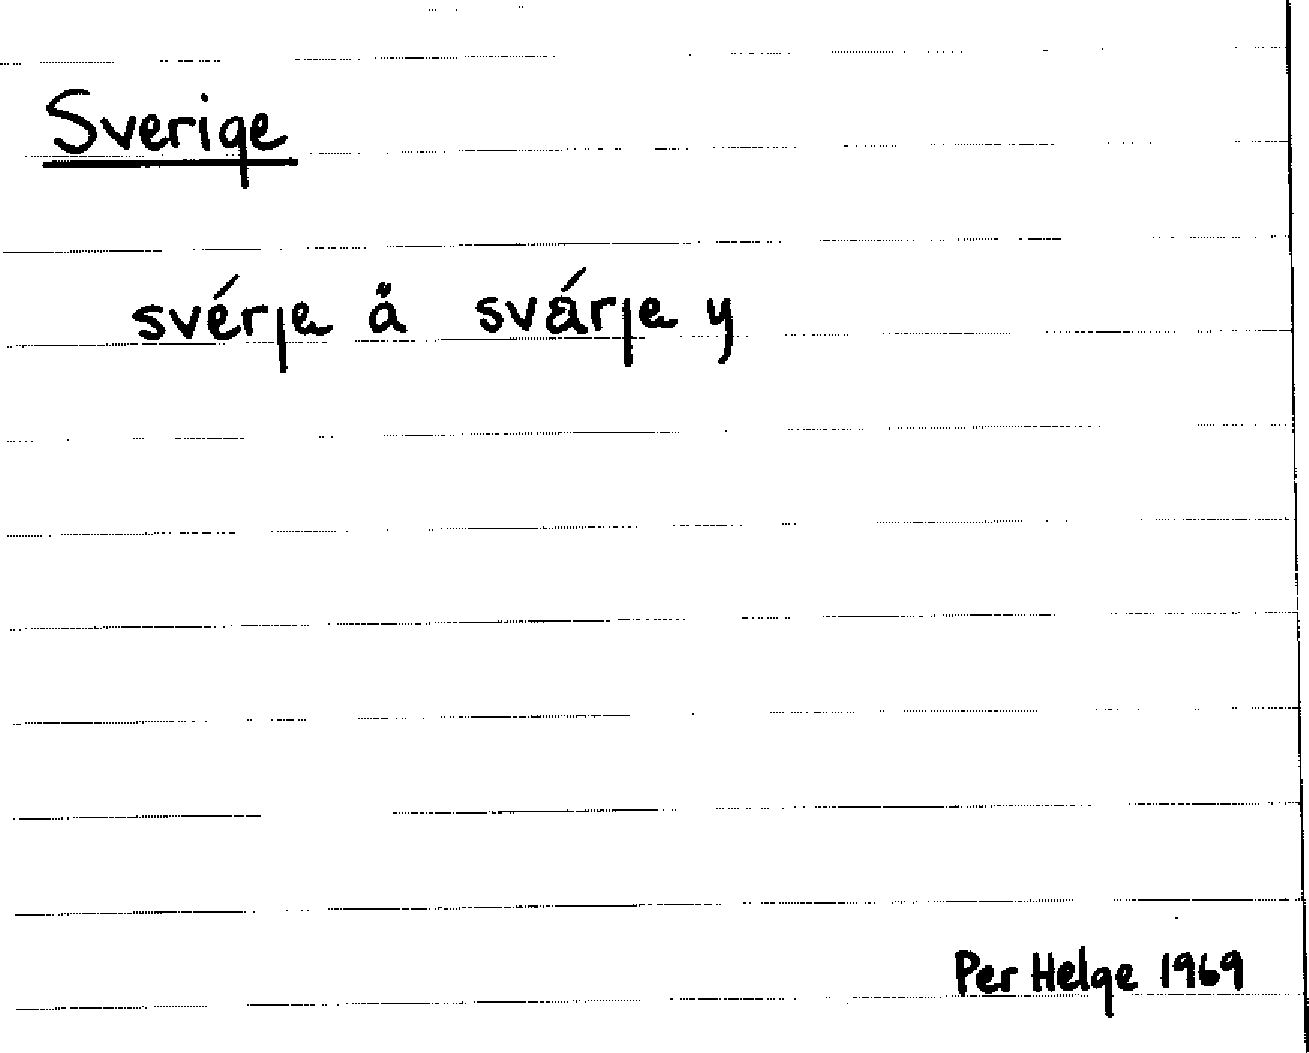 Sverige
svérje å svárje y
Per Helge 1969